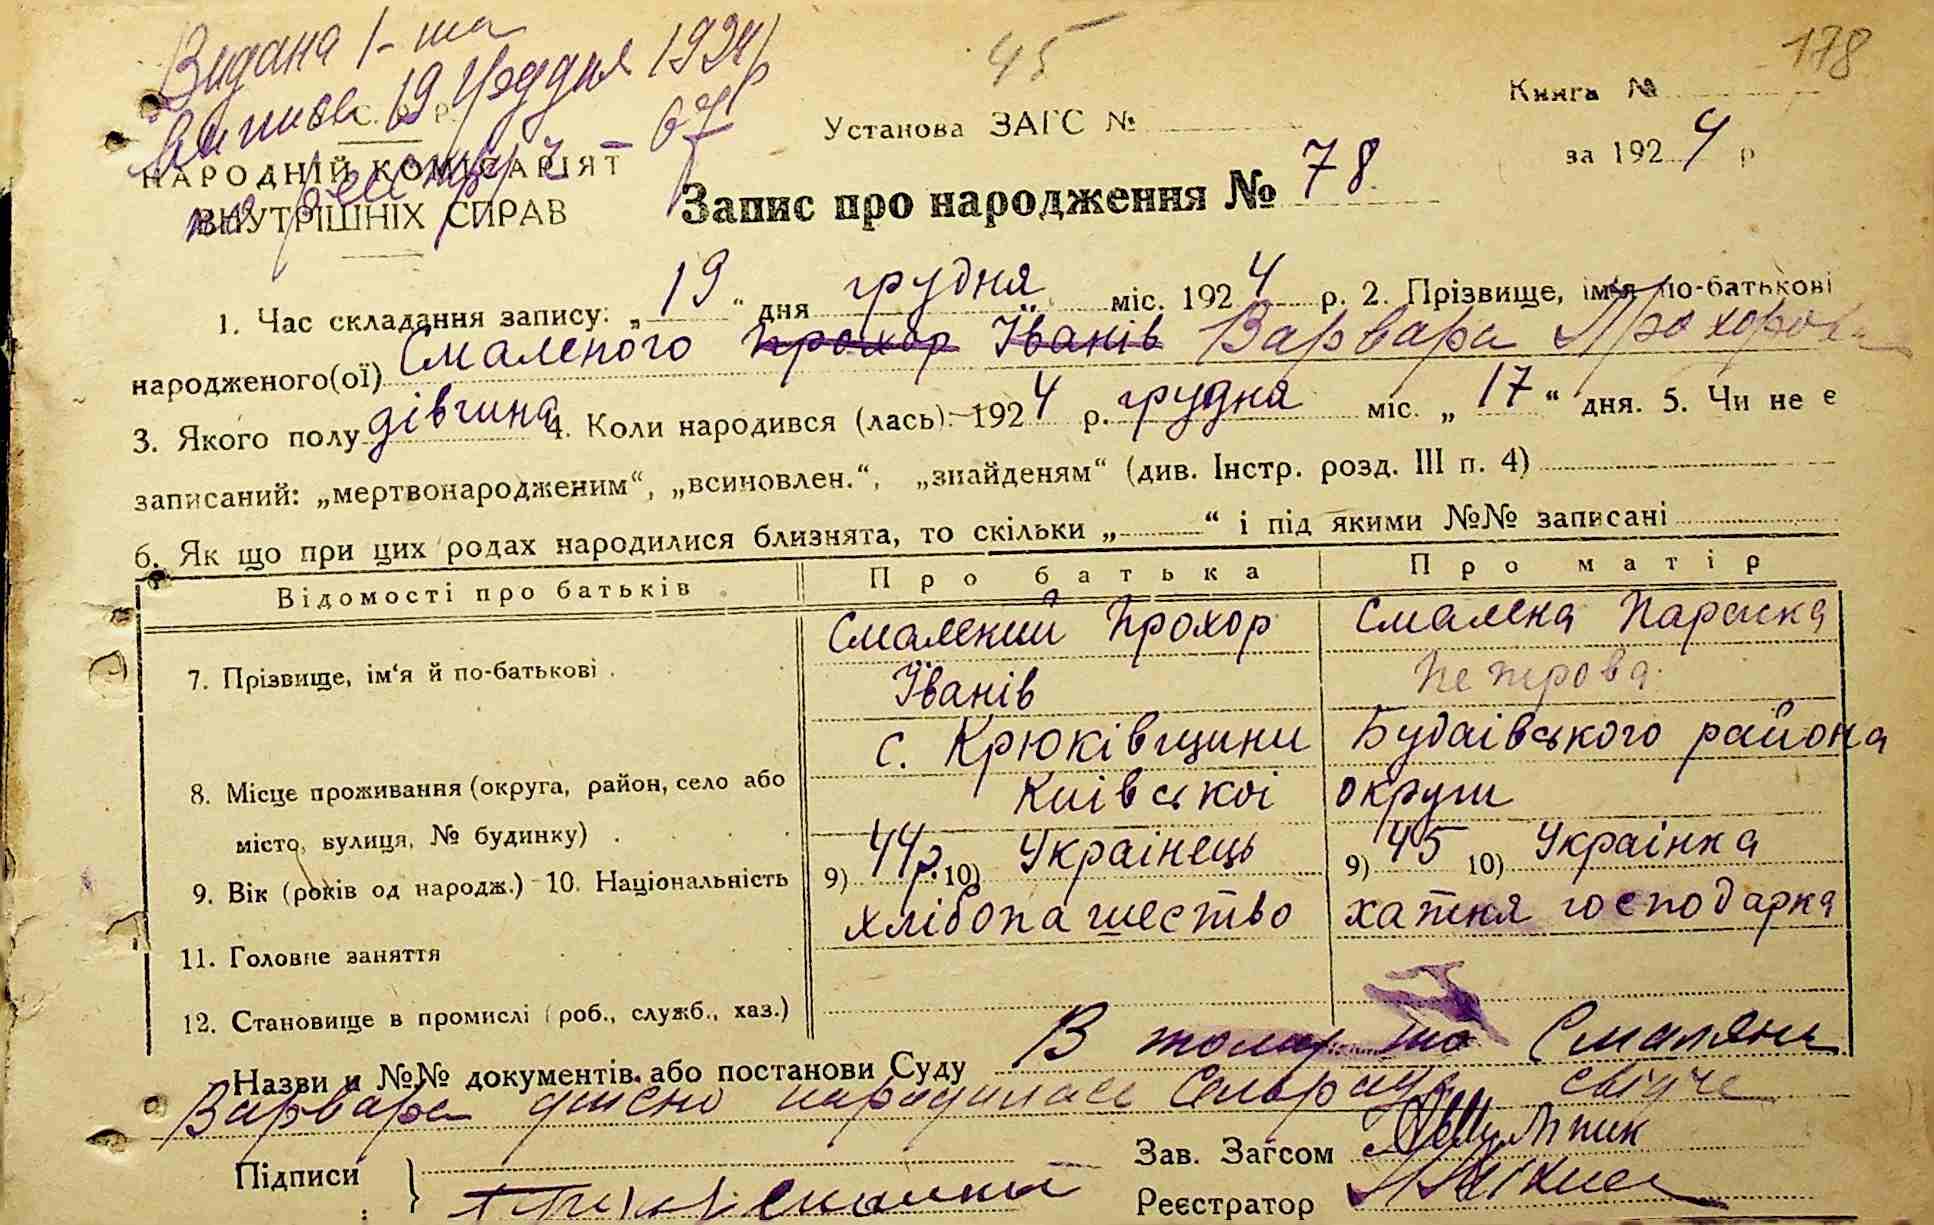 45
178
Видана 1-ша
виписка 19 Грудня 1924 р
по реєстру № 67
Книга №
Установа ЗАГС №
за 1924 р
НАРОДНІЙ КОМІСАРІЯТ
ВНУТРІШНІХ СПРАВ
Запис про народження № 78
1. Час складання запису: „19“ дня грудня міс. 1924 р. 2. Прізвище, ім'я по-батькові
народженого(ої) Смаленого Прохор Іванів Варвара Прохорова
3. Якого полу дівчина 4. Коли народився (лась) 1924 р. грудня міс. „17“ дня. 5. Чи не є
записаний: „мертвонародженим“, „всиновлен.“, „знайденям“ (див. Інстр. розд. III п. 4)
6. Як що при цих родах народилися близнята, то скільки „ “ і під якими №№ записані
Відомості про батьків Про батька Про матір
7. Прізвище, ім'я й по-батькові Смалений Прохор Іванів Смалена Параска Петрова
8. Місце проживання (округа, район, село або с. Крюківщини Будаівського района
місто, вулиця, № будинку) Киівськоі округи
9. Вік (років од народж.) 10. Національність 9) 44р. 10) Украінець 9) 45 10) Украінка
11. Головне заняття хлібопашество хатня господарка
12. Становище в промислі (роб., служб., хаз.)
Назви и №№ документів або постанови Суду В тому що Смаляна
Варвара дійсно народилась Сельрада свідче
Підписи
Зав. Загсом
Реєстратор